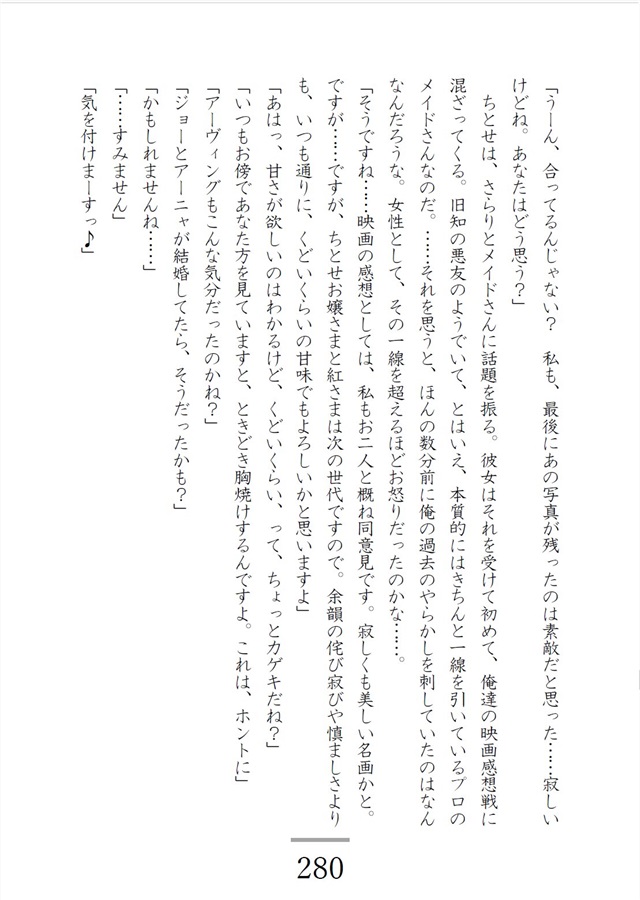 「うーん、合ってるんじゃない？　私も、最後にあの写真が残ったのは素敵だと思った……寂しい
けどね。あなたはどう思う？」
　ちとせは、さらりとメイドさんに話題を振る。彼女はそれを受けて初めて、俺達の映画感想戦に
混ざってくる。旧知の悪友のようでいて、とはいえ、本質的にはきちんと一線を引いているプロの
メイドさんなのだ。……それを思うと、ほんの数分前に俺の過去のやらかしを刺していたのはなん
なんだろうな。女性として、その一線を超えるほどお怒りだったのかな……。
「そうですね……映画の感想としては、私もお二人と概ね同意見です。寂しくも美しい名画かと。
ですが……ですが、ちとせお嬢さまと紅さまは次の世代ですので。余韻の侘び寂びや慎ましさより
も、いつも通りに、くどいくらいの甘味でもよろしいかと思いますよ」
「あはっ、甘さが欲しいのはわかるけど、くどいくらい、って、ちょっとカゲキだね？」
「いつもお傍であなた方を見ていますと、ときどき胸焼けするんですよ。これは、ホントに」
「アーヴィングもこんな気分だったのかね？」
「ジョーとアーニャが結婚してたら、そうだったかも？」
「かもしれませんね……」
「……すみません」
「気を付けまーすっ♪」
280